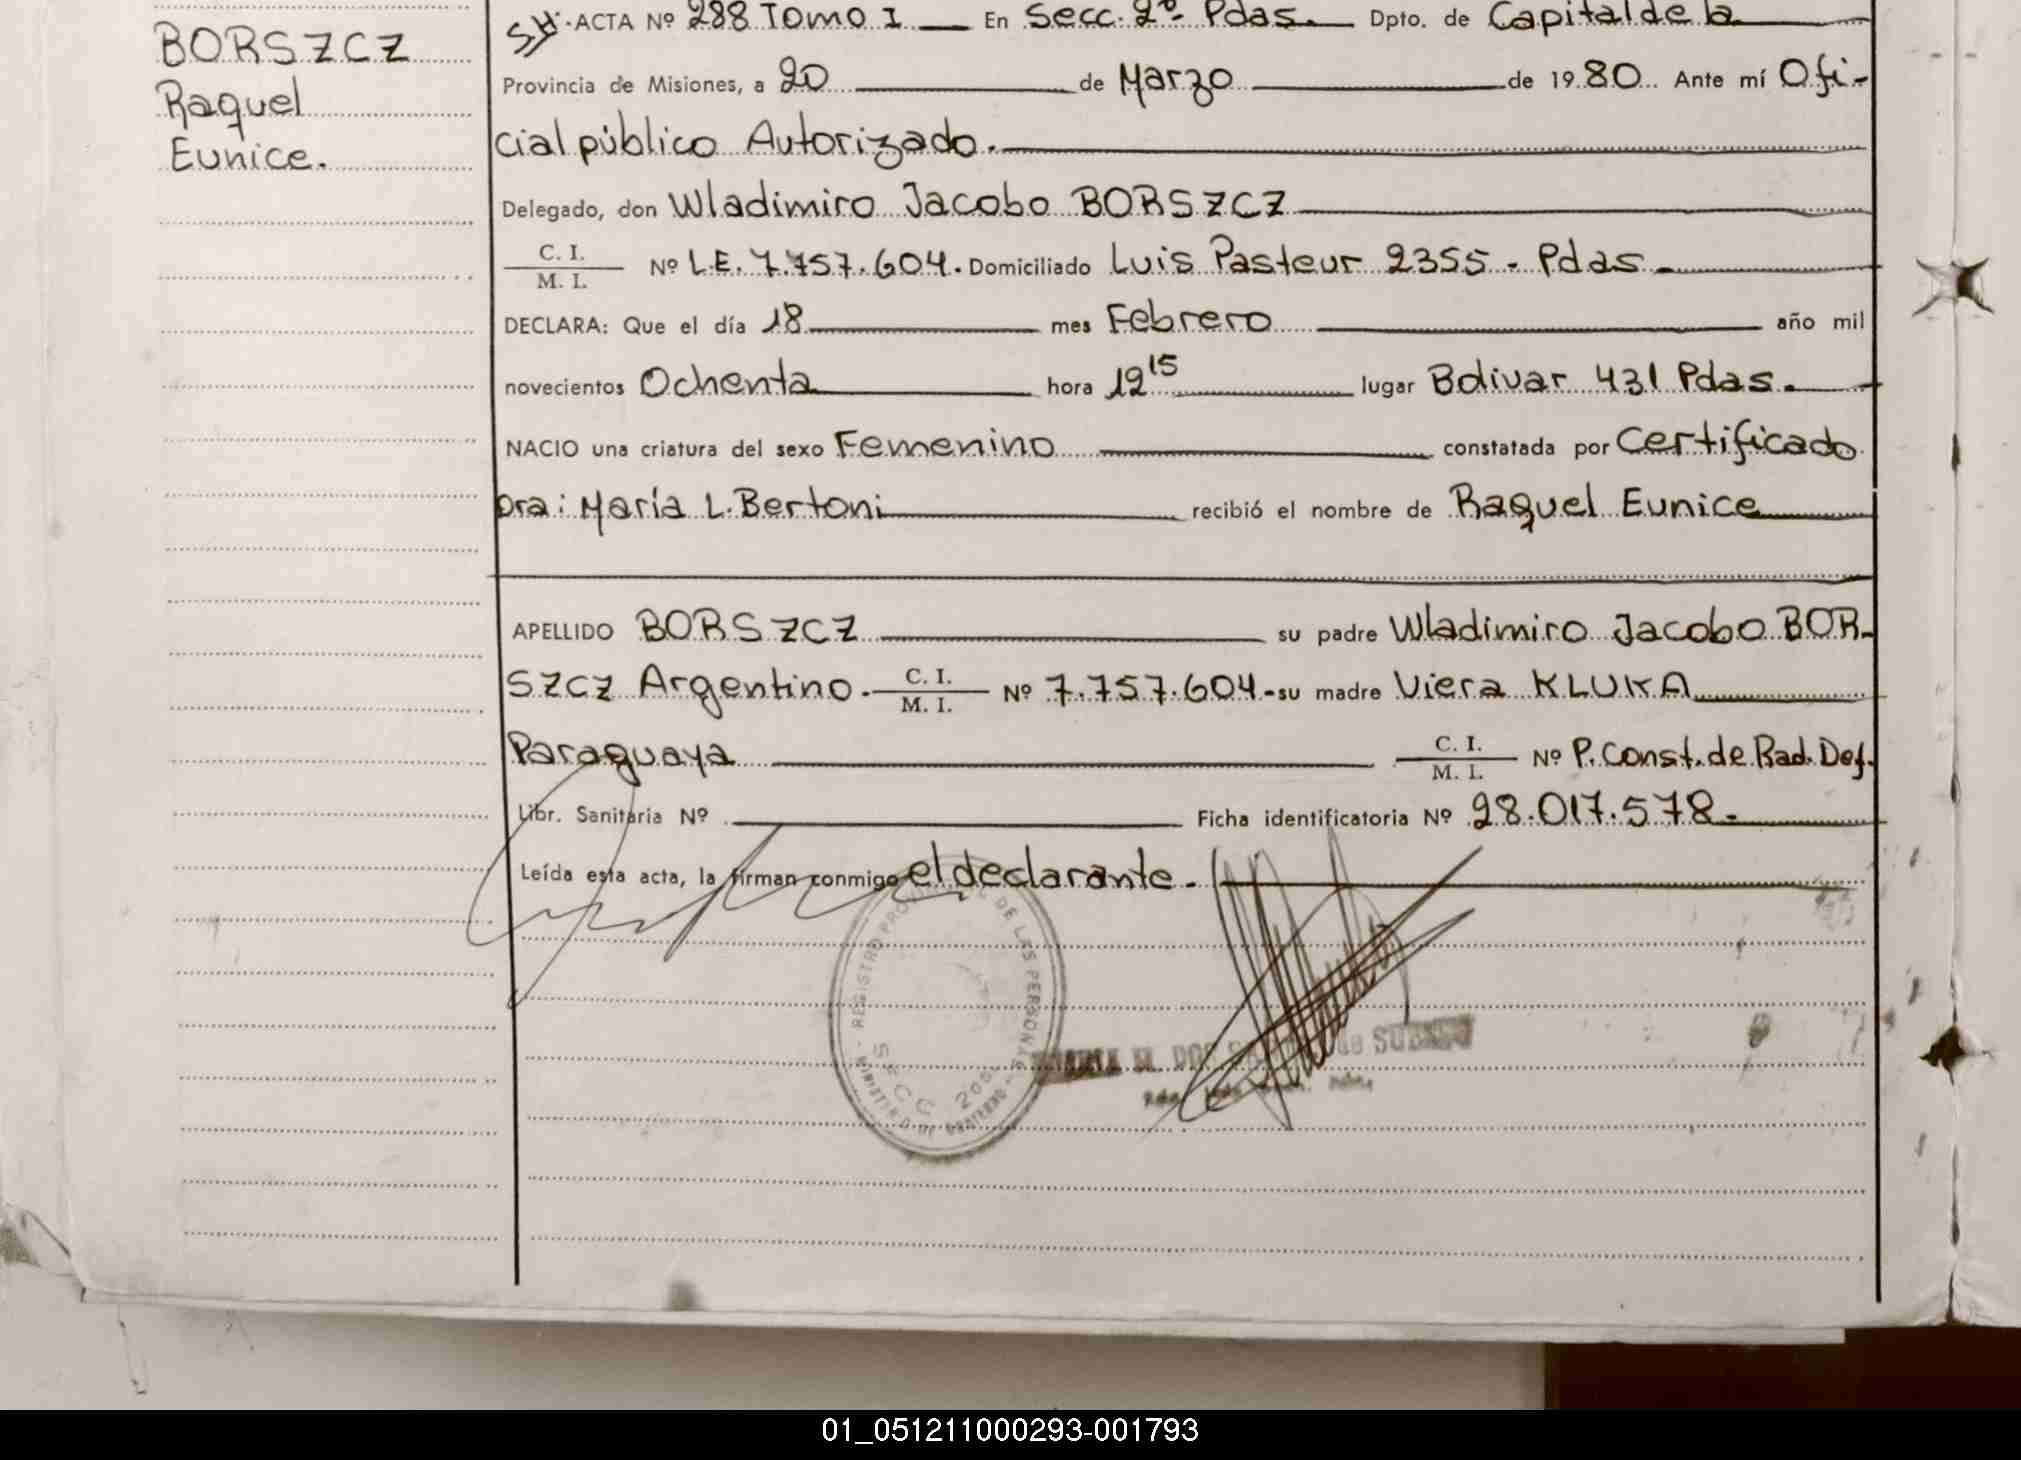 BORSZCZ
Raquel
Eunice.
S/H. ACTA Nº 288 Tomo I En Secc. 2º Pdas. Dpto. de Capital de la
Provincia de Misiones, a 20 de Marzo de 1980. Ante mí Ofi-
cial público Autorizado.
Delegado, don Wladimiro Jacobo BORSZCZ
C. I.
M. I. Nº L.E. 7.757.604. Domiciliado Luis Pasteur 2355 - Pdas.
DECLARA: Que el día 18 mes Febrero año mil
novecientos Ochenta hora 12 15 lugar Bolivar 431 Pdas.
NACIO una criatura del sexo Femenino constatada por Certificado
Dra: María L. Bertoni recibió el nombre de Raquel Eunice
APELLIDO BORSZCZ su padre Wladimiro Jacobo BOR-
SZCZ Argentino. C. I. M. I. Nº 7.757.604.- su madre Viera KLUKA
Paraguaya C. I. M. I. Nº P. Const. de Rad. Def.
Libr. Sanitaria Nº Ficha identificatoria Nº 28.017.578.-
Leída esta acta, la firman conmigo el declarante.
REGISTRO DE LAS PERSONAS
SECC 2da
01_051211000293-001793